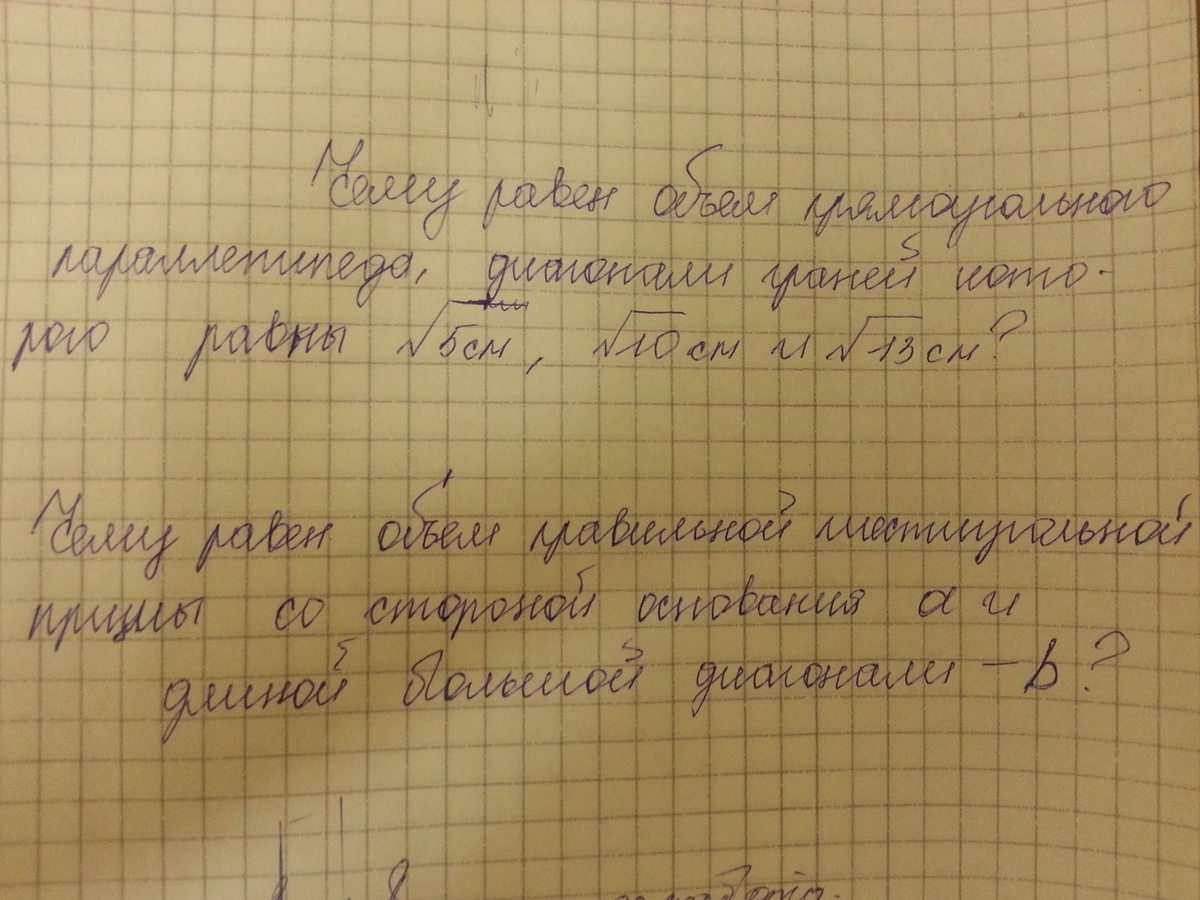 Чему равен объем прямоугольного
параллепипеда, диагонали граней кото-
рого равны √5см, √10 см и √13 см?
Чему равен объем правильной шестиугольной
призмы со стороной основания a и
длиной большой диагонали – b?